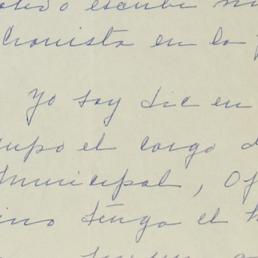 escribi
Cronista en la
Yo soy Lic en
upo el cargo d
Municipal, Of
ino tengo el t